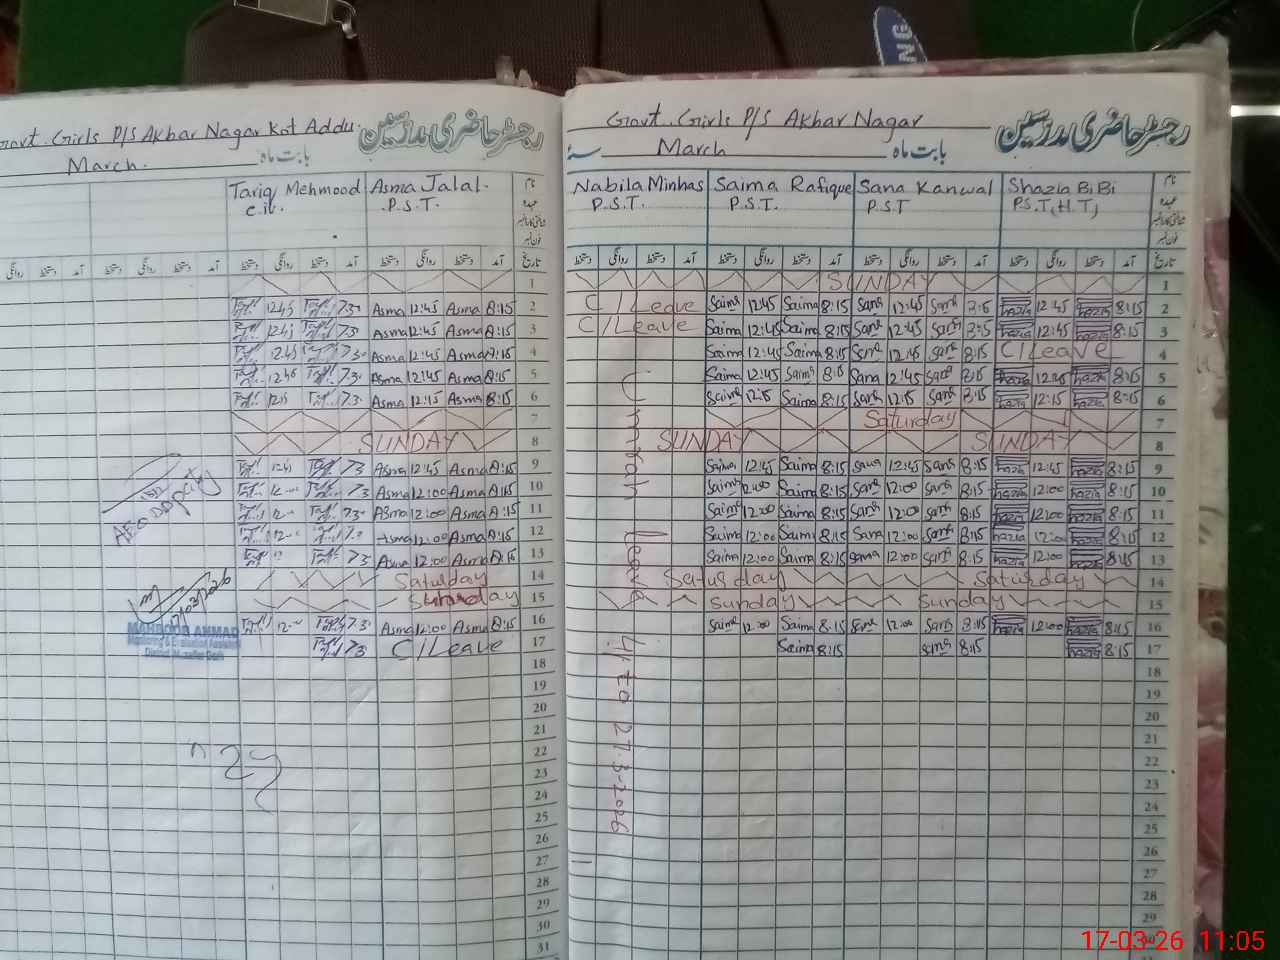 Govt. Girls P/S Akbar Nagar Kot Addu.
رجسٹر حاضری مدرسین
March.
بابت ماہ
Tariq Mehmood
Asma Jalal.
P.S.T.
نام
عہدہ
دستخط روانگی دستخط آمد دستخط روانگی دستخط آمد دستخط روانگی دستخط آمد تاریخ
1
12:45 7:3 Asma 12:45 Asma 8:15 2
12:45 7:3 Asma 12:45 Asma 8:15 3
12:45 7:3 Asma 12:45 Asma 8:15 4
12:45 7:3 Asma 12:45 Asma 8:15 5
12:15 7:3 Asma 12:15 Asma 8:15 6
7
SUNDAY 8
7:3 Asma 12:45 Asma 8:15 9
12:00 7:3 Asma 12:00 Asma 8:15 10
12:00 7:3 Asma 12:00 Asma 8:15 11
12:00 7:3 Asma 12:00 Asma 8:15 12
7:3 Asma 12:00 Asma 8:15 13
Saturday 14
Sunday 15
12:00 7:3 Asma 12:00 Asma 8:15 16
7:3 C/Leave 17
18
19
20
21
22
23
24
25
26
27
28
29
30
31
17/03/2026
MAHBOOB AHMAD
Govt. Girls P/S Akbar Nagar
رجسٹر حاضری مدرسین
March
بابت ماہ
Nabila Minhas Saima Rafique Sana Kanwal Shazia BiBi
P.S.T. P.S.T. P.S.T P.S.T,(H.T)
نام
عہدہ
دستخط روانگی دستخط آمد دستخط روانگی دستخط آمد دستخط روانگی دستخط آمد دستخط روانگی دستخط آمد تاریخ
SUNDAY 1
C/Leave Saima 12:45 Saima 8:15 Sana 12:45 Sana 8:15 hazia 12:45 hazia 8:15 2
C/Leave Saima 12:45 Saima 8:15 Sana 12:45 Sana 8:15 hazia 12:45 hazia 8:15 3
Saima 12:45 Saima 8:15 Sana 12:45 Sana 8:15 C/Leave 4
Saima 12:45 Saima 8:15 Sana 12:45 Sana 8:15 hazia 12:45 hazia 8:15 5
Saima 12:15 Saima 8:15 Sana 12:15 Sana 8:15 hazia 12:15 hazia 8:15 6
Saturday 7
SUNDAY SUNDAY 8
Saima 12:45 Saima 8:15 Sana 12:45 Sana 8:15 hazia 12:45 hazia 8:15 9
Saima 12:00 Saima 8:15 Sana 12:00 Sana 8:15 hazia 12:00 hazia 8:15 10
Saima 12:00 Saima 8:15 Sana 12:00 Sana 8:15 hazia 12:00 hazia 8:15 11
Saima 12:00 Saima 8:15 Sana 12:00 Sana 8:15 hazia 12:00 hazia 8:15 12
Saima 12:00 Saima 8:15 Sana 12:00 Sana 8:15 hazia 12:00 hazia 8:15 13
Saturday Saturday 14
Sunday Sunday 15
Saima 12:00 Saima 8:15 Sana 12:00 Sana 8:15 hazia 12:00 hazia 8:15 16
Saima 8:15 Sana 8:15 hazia 8:15 17
18
19
20
21
22
23
24
25
26
27
28
29
30
Umrah Leave 4/ to 27.3-2026
17-03-26 11:05